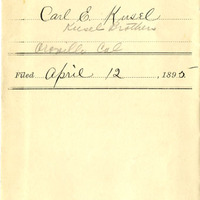 Carl E. Kusel
Kusel Brothers
Oroville Cal
Filed April 12, 1895